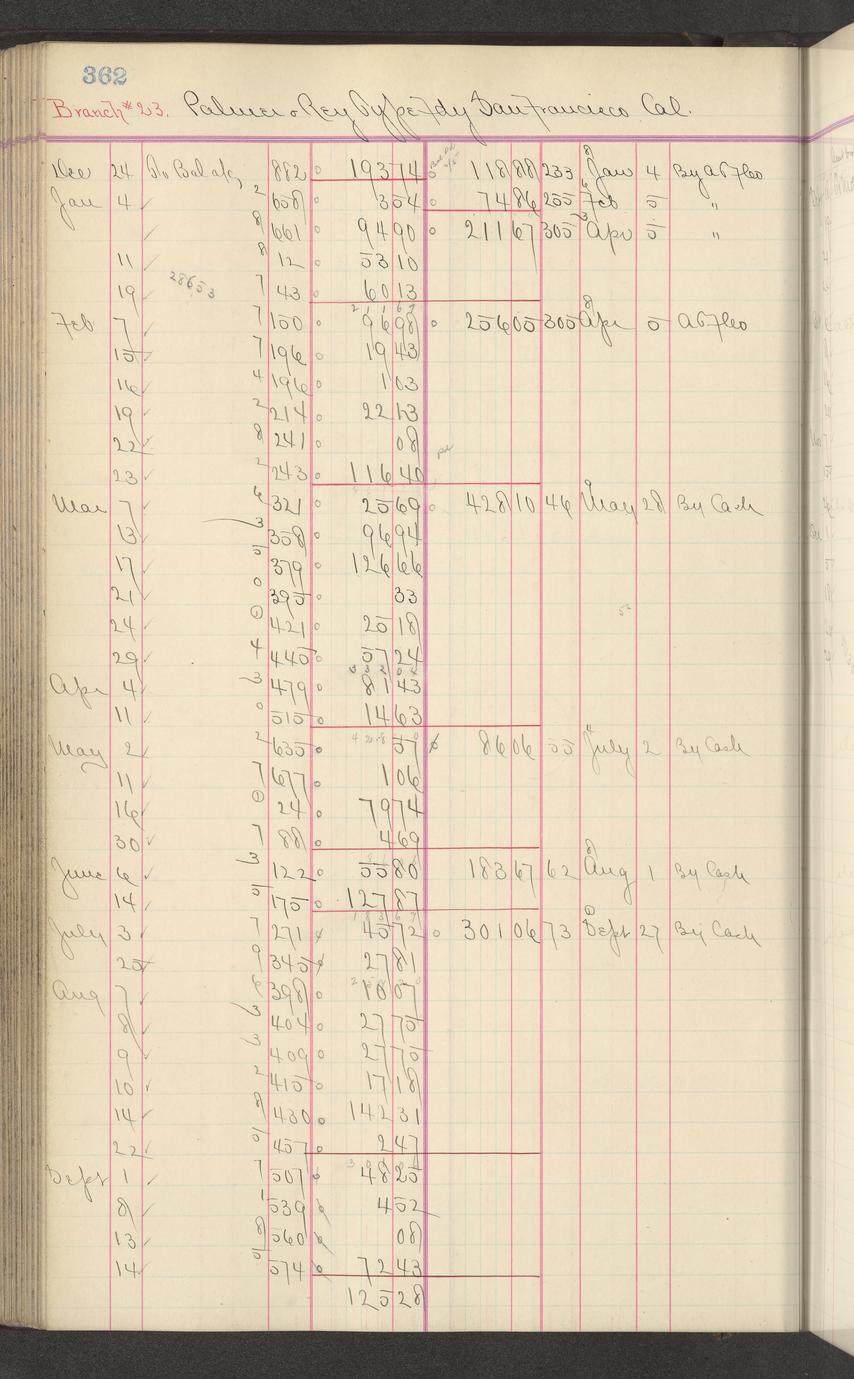 362
Branch #23. Palmer & Rey Type Fdy San Francisco Cal.
Dec 24 To Bal 882 193 74 118 88 233 8 Jan 4 By
Jan 4 2 658 3 54 74 86 255 6 Feb 5 "
8 661 94 90 211 67 305 3 Apr 5 "
11 8 12 53 10
19 28653 7 43 60 13
2 1 1 6 7
Feb 7 7 150 96 98 256 05 305 8 Apr 5
15 7 196 19 43
16 4 196 1 03
19 2 214 22 13
22 8 241 08
23 2 243 116 40
Mar 7 6 321 25 69 428 10 46 9 May 28 By Cash
13 3 358 96 94
17 5 379 126 66
21 0 395 33
24 1 421 25 18
29 4 445 57 24
3 3 2 0 4
Apr 4 3 479 81 43
11 0 515 14 63
May 2 2 635 57 86 06 55 4 July 2 By Cash
11 7 677 1 06
16 1 24 79 74
30 7 88 4 69
June 6 3 122 55 80 183 67 62 8 Aug 1 By Cash
14 5 175 127 87
1 8 3 6 7
July 3 7 271 45 72 301 06 73 1 Sept 27 By Cash
25 9 345 27 81
Aug 7 6 398 10 07
8 3 404 27 75
9 3 409 27 75
10 2 415 17 18
14 8 430 142 31
22 5 457 2 47
Sept 1 7 507 48 25
8 1 539 4 52
13 8 560 08
14 5 574 72 43
125 28